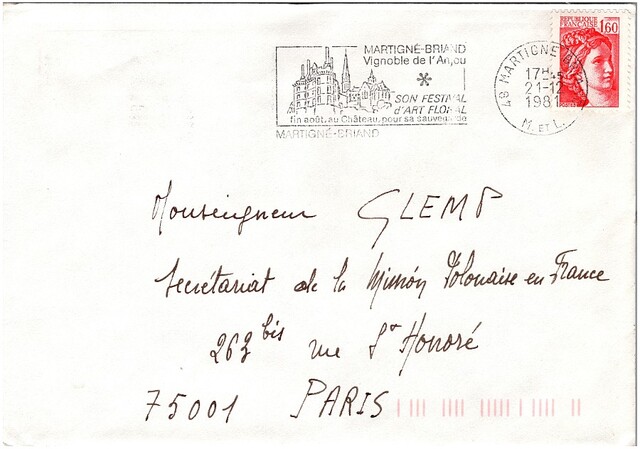 REPUBLIQUE
FRANÇAISE
1,60
MARTIGNÉ-BRIAND
Vignoble de l'Anjou
SON FESTIVAL
d'ART FLORAL
fin août, au Château, pour sa sauvegarde
MARTIGNÉ-BRIAND
49 MARTIGNE
17H
21-12
1981
M. ET L.
Monseigneur GLEMP
Secrétariat de la Mission Polonaise en France
263 bis rue St Honoré
75001 PARIS